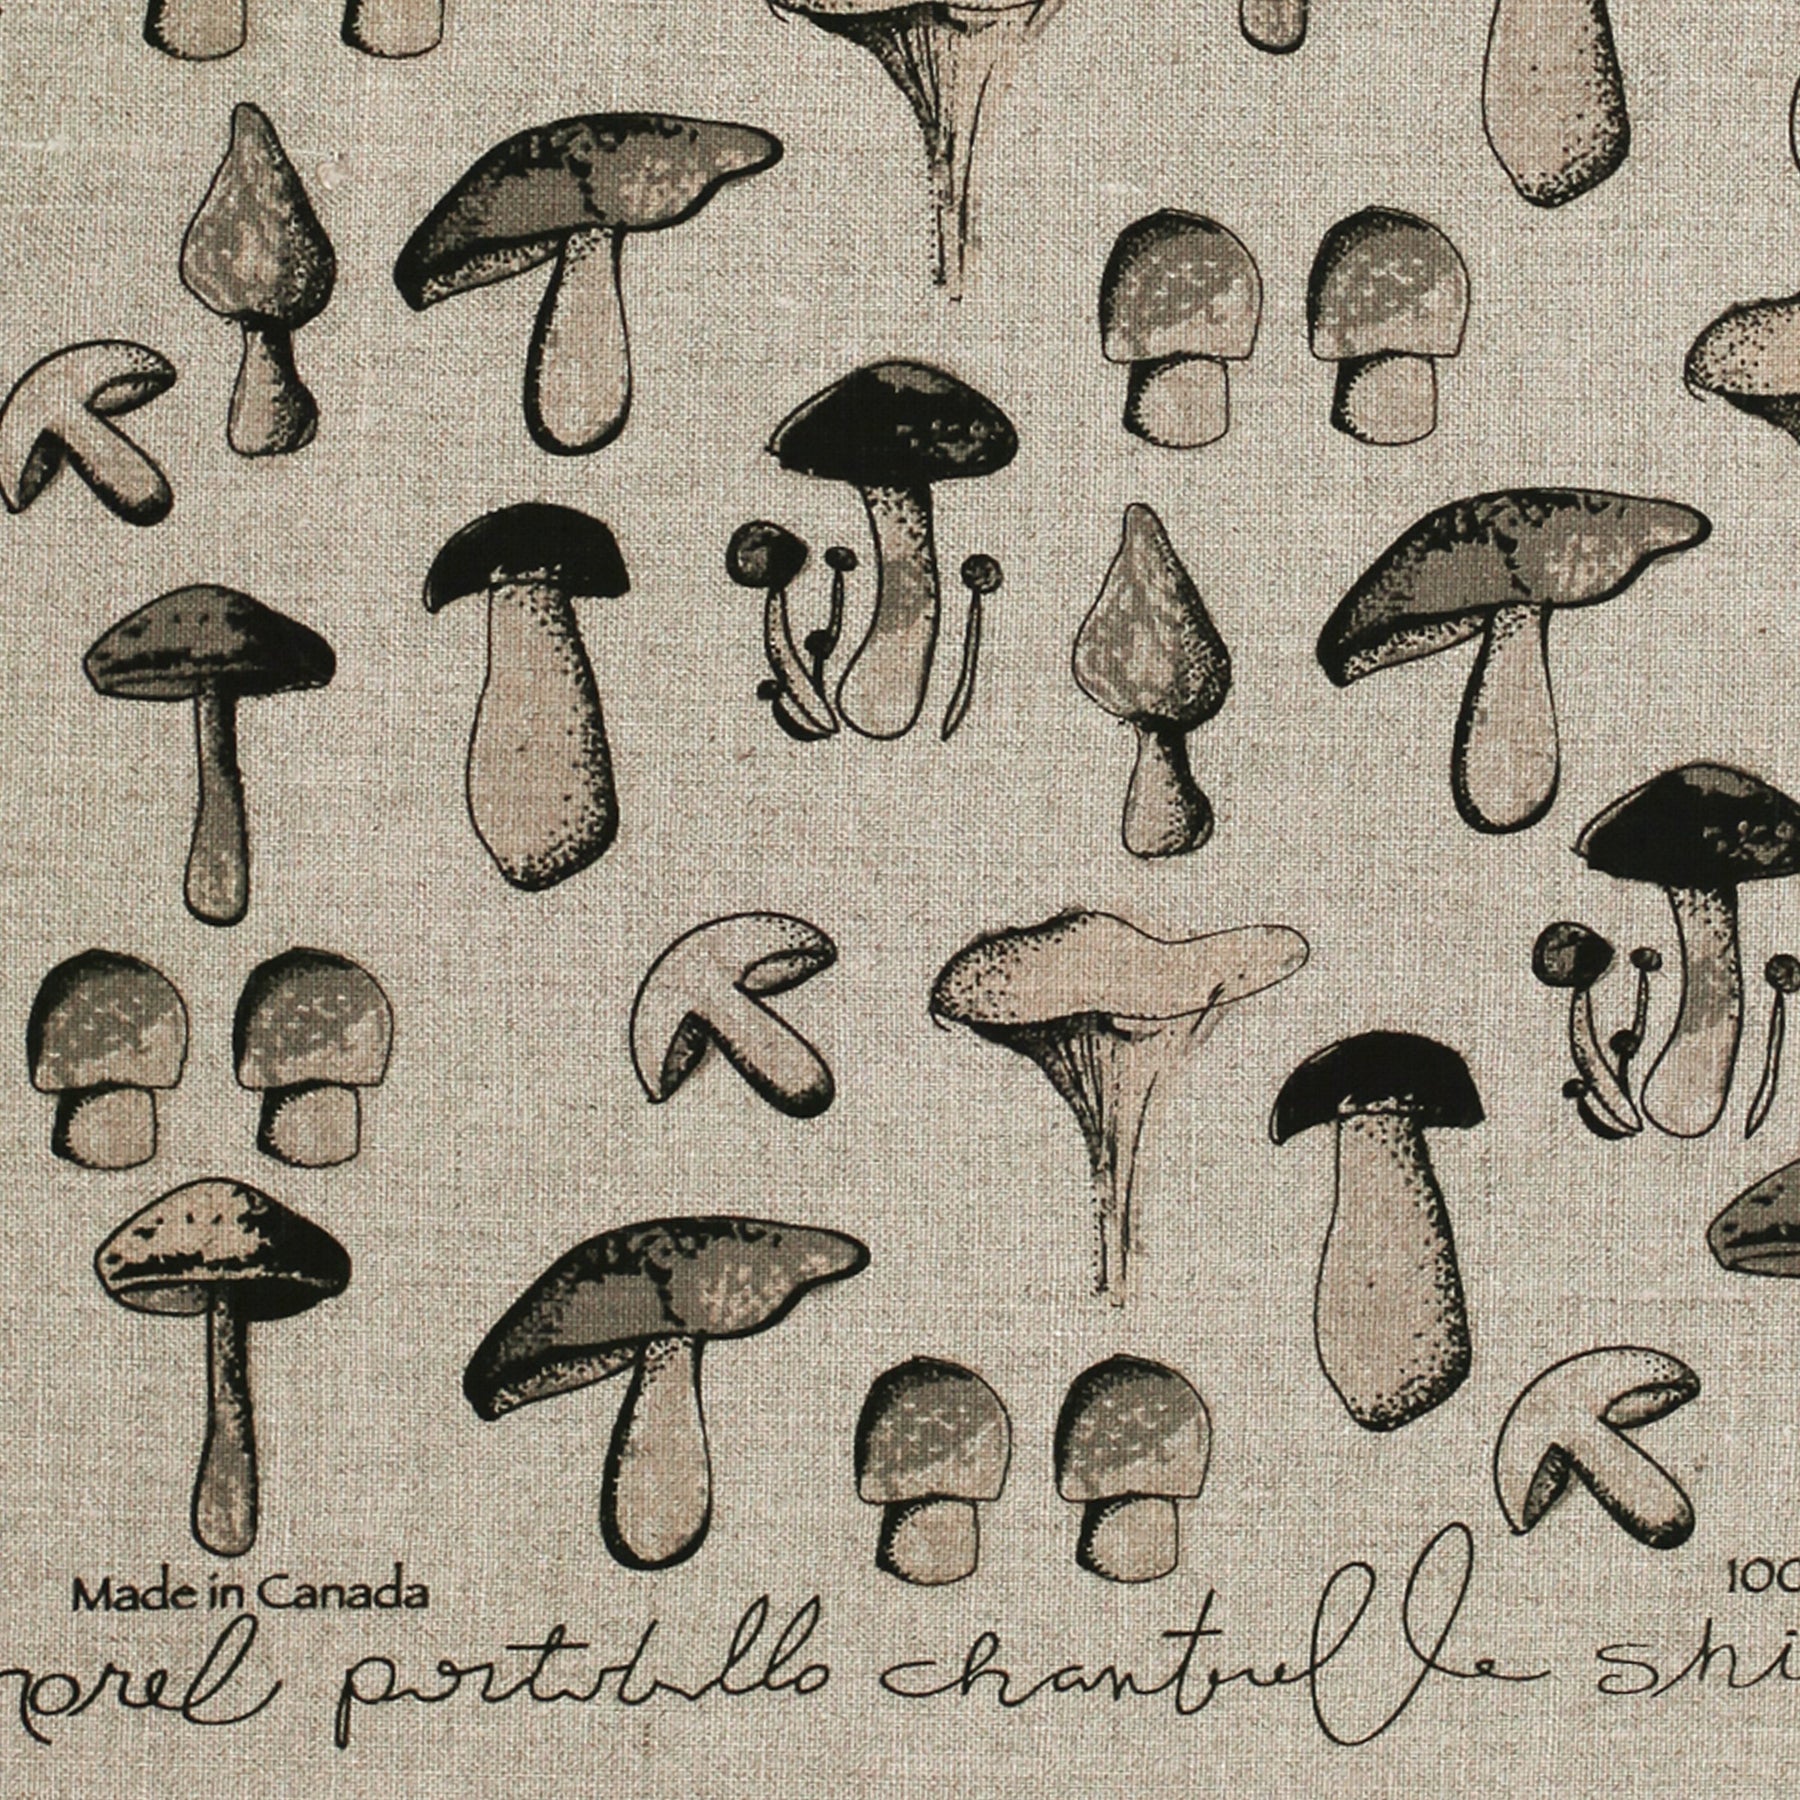 Made in Canada 100
morel portobello chantrelle shi